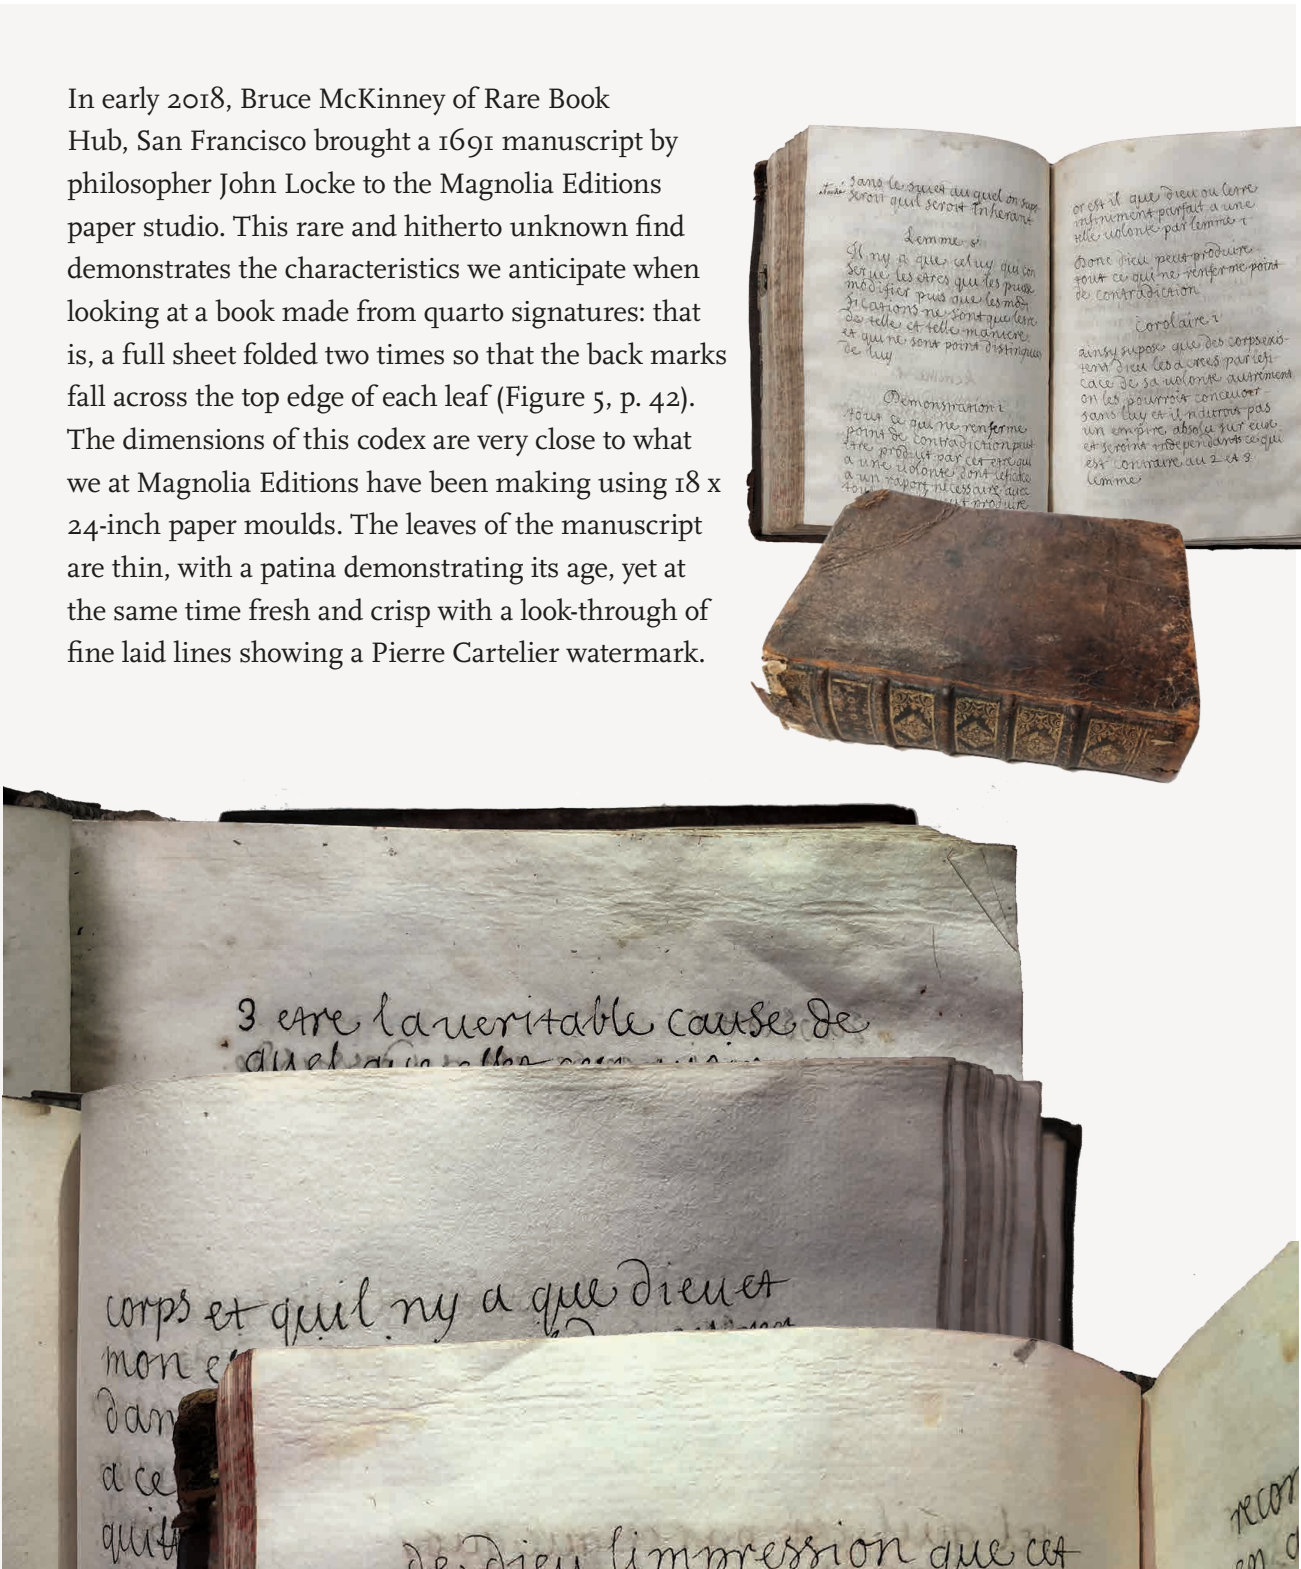 In early 2018, Bruce McKinney of Rare Book
Hub, San Francisco brought a 1691 manuscript by
philosopher John Locke to the Magnolia Editions
paper studio. This rare and hitherto unknown find
demonstrates the characteristics we anticipate when
looking at a book made from quarto signatures: that
is, a full sheet folded two times so that the back marks
fall across the top edge of each leaf (Figure 5, p. 42).
The dimensions of this codex are very close to what
we at Magnolia Editions have been making using 18 x
24-inch paper moulds. The leaves of the manuscript
are thin, with a patina demonstrating its age, yet at
the same time fresh and crisp with a look-through of
fine laid lines showing a Pierre Cartelier watermark.
sans le suiet du quel on
seroit quil seroit Inherant
Lemme 8
Il ny a que celuy qui con
serue les etres qui les puisse
modifier puis que les modi
fications ne sont que letre
de telle et telle maniere
et qui ne sont point distingues
de luy
Demonstration 1
tout ce qui ne renferme
point de contradiction peut
etre produit par cet etre qui
a une uolonte dont
a un raport necessaire auec
produire
or est il que dieu ou letre
infiniment parfait a une
telle uolonte par lemme 1
Donc dieu peut produire
tout ce qui ne renferme point
de contradiction
Corolaire 1
ainsy supose que des corps exis-
tent dieu les a crees par lefi-
cace de sa uolonte autrement
on les pourroit conceuoir
sans luy et il nauroit pas
un empire absolu sur eux
et seroint independants ce qui
est contraire au 2 et 8
lemme
3 etre la ueritable cause de
corps et quil ny a que dieu et
mon
dan
a ce
quitt
de dieu limpression que cet
recon
en